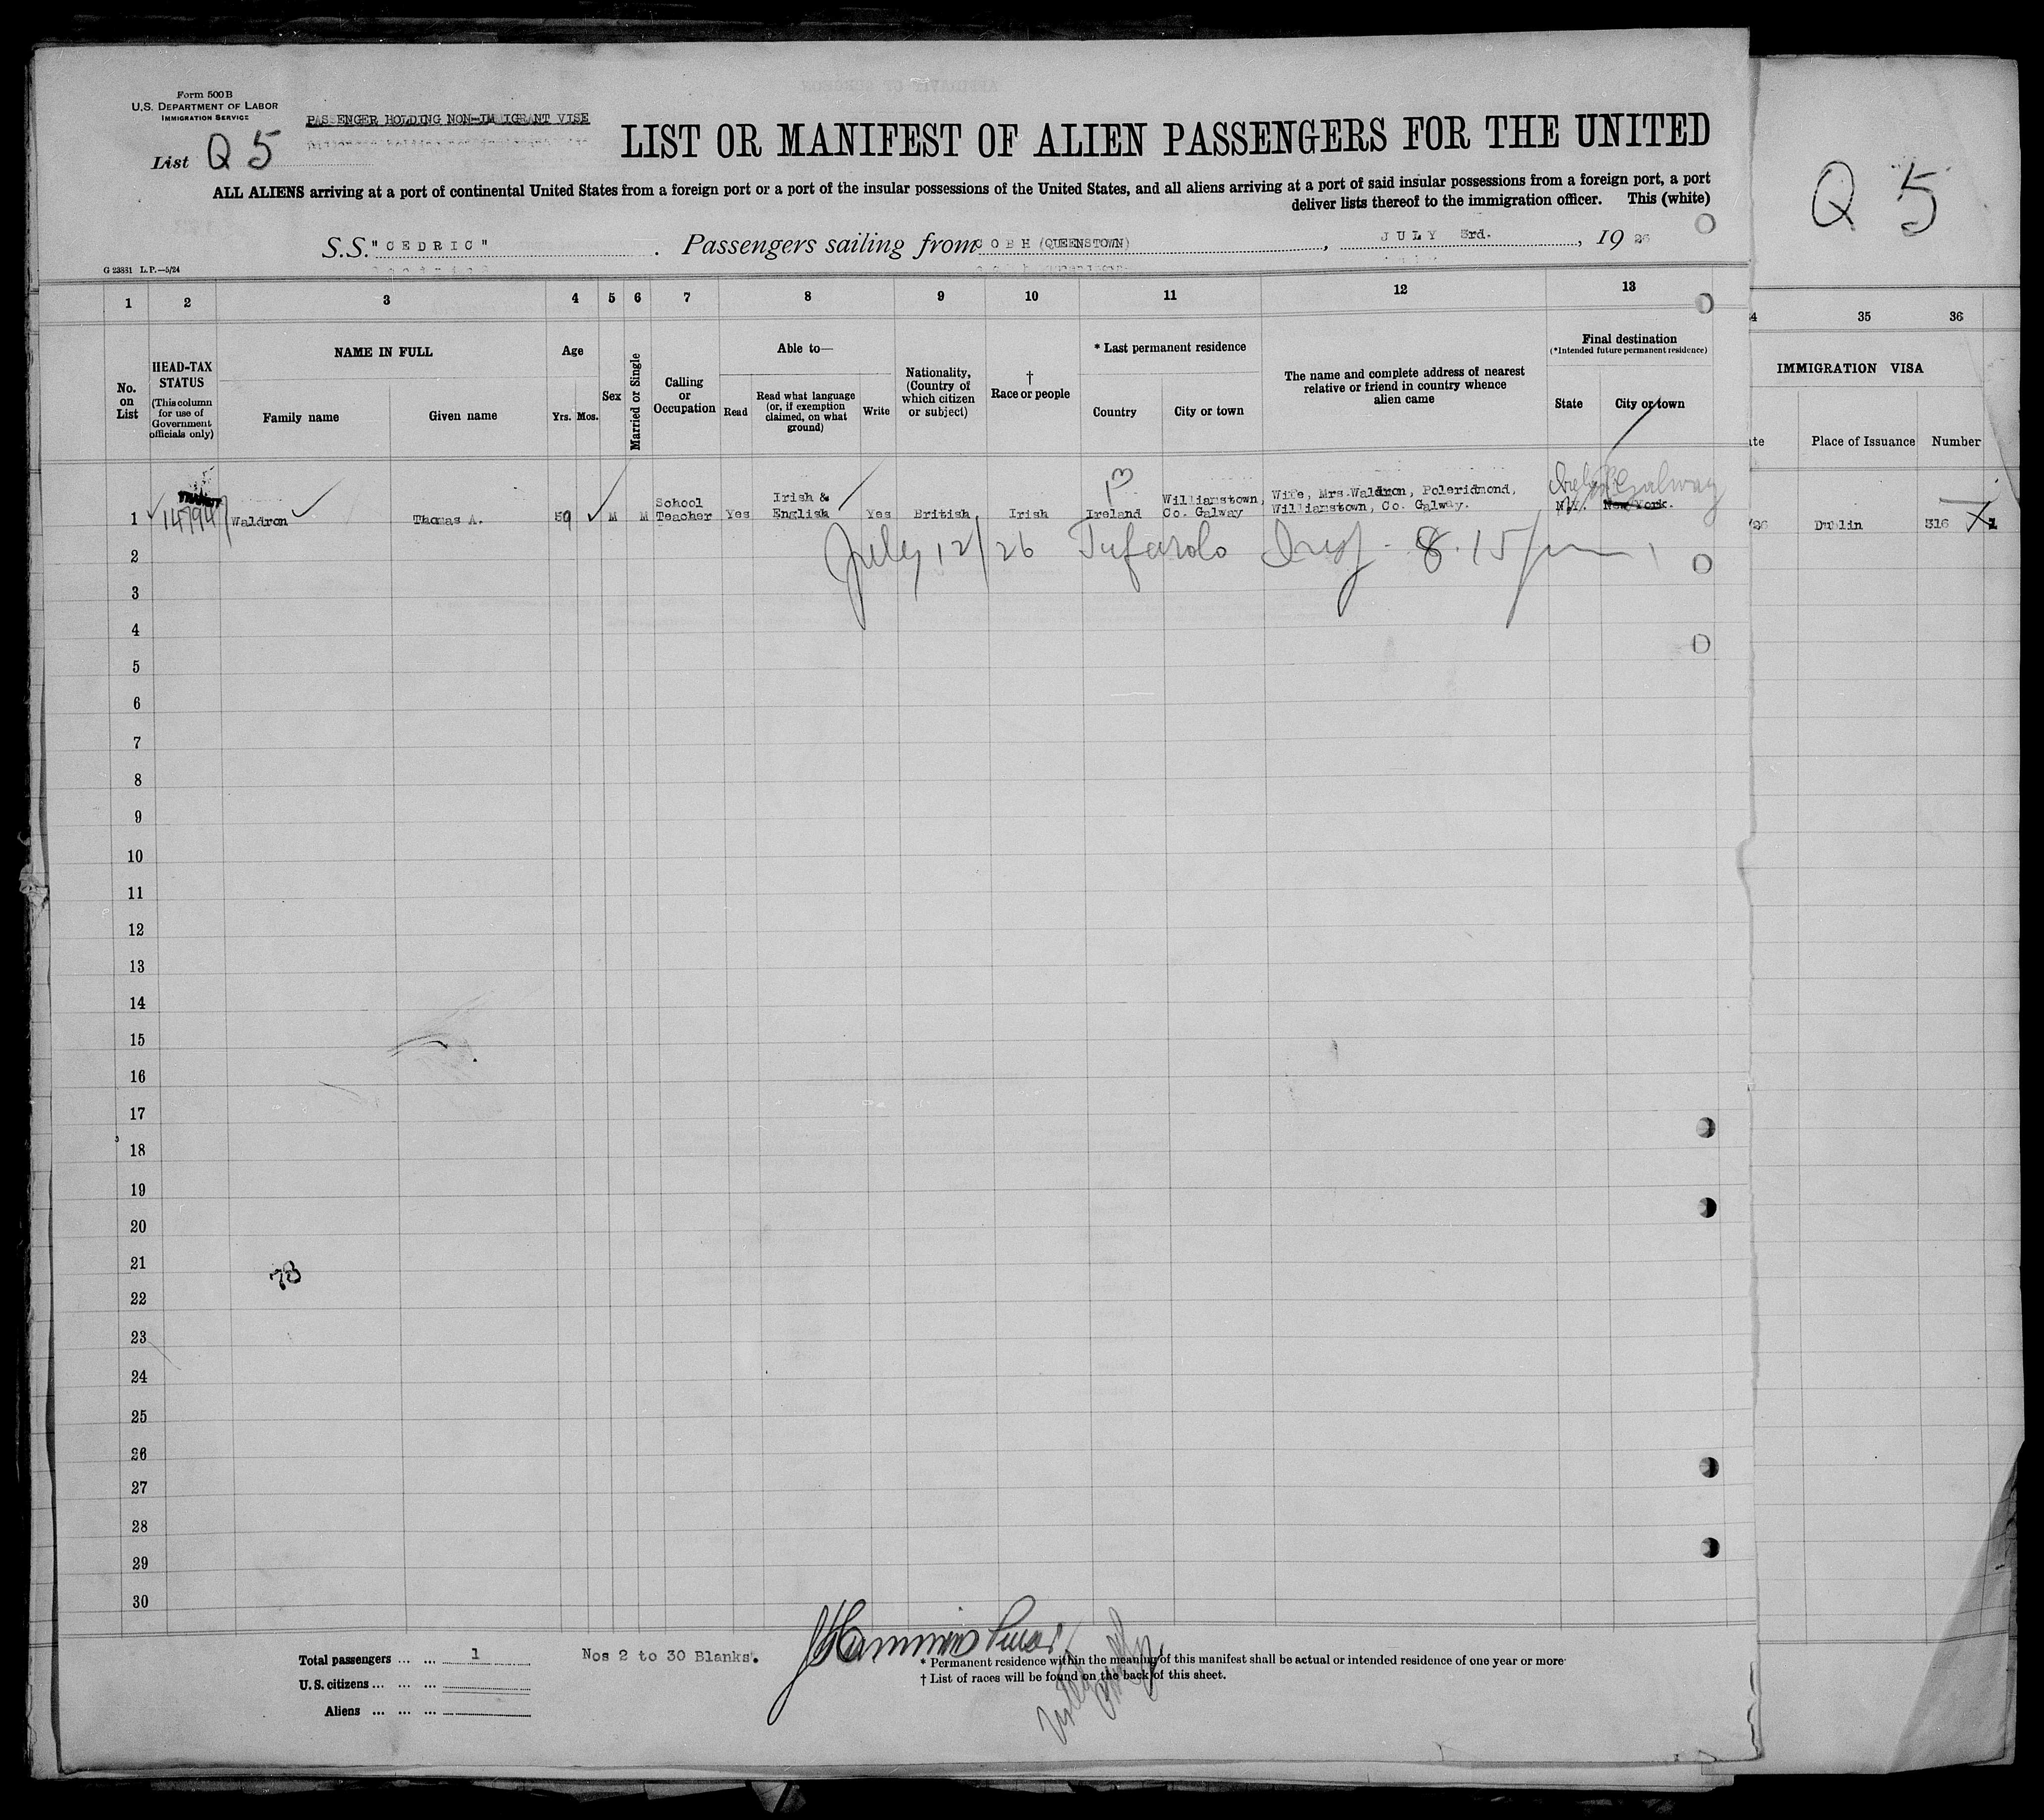 Form 500 B
U.S. DEPARTMENT OF LABOR
IMMIGRATION SERVICE
PASSENGER HOLDING NON-IMMIGRANT VISE
List Q 5
LIST OR MANIFEST OF ALIEN PASSENGERS FOR THE UNITED
ALL ALIENS arriving at a port of continental United States from a foreign port or a port of the insular possessions of the United States, and all aliens arriving at a port of said insular possessions from a foreign port, a port
deliver lists thereof to the immigration officer. This (white)
S.S. "CEDRIC". Passengers sailing from COBH (QUEENSTOWN), JULY 3rd., 1926
G 23831 L.P.—5/24
Q 5
1 2 3 4 5 6 7 8 9 10 11 12 13
4 35 36
No. on List
HEAD-TAX STATUS
(This column for use of Government officials only)
NAME IN FULL
Family name Given name
Age
Yrs. Mos.
Sex
Married or Single
Calling or Occupation
Able to—
Read
Read what language (or, if exemption claimed, on what ground)
Write
Nationality, (Country of which citizen or subject)
† Race or people
* Last permanent residence
Country City or town
The name and complete address of nearest relative or friend in country whence alien came
Final destination
(*Intended future permanent residence)
State City or town
IMMIGRATION VISA
te Place of Issuance Number
TRANSIT
1 147947 Waldron Thomas A. 59 M M School Teacher Yes Irish & English Yes British Irish Ireland Williamstown, Co. Galway Wife, Mrs. Waldron, Poleridmond, Williamstown, Co. Galway. N.Y. New York.
Galway
/26 Dublin 316 1
July 12/26 8.15 pm
2
3
4
5
6
7
8
9
10
11
12
13
14
15
16
17
18
19
20
21
78
22
23
24
25
26
27
28
29
30
Total passengers ... ... 1
U.S. citizens ... ... ...
Aliens ... ... ...
Nos 2 to 30 Blanks.
* Permanent residence within the meaning of this manifest shall be actual or intended residence of one year or more
† List of races will be found on the back of this sheet.